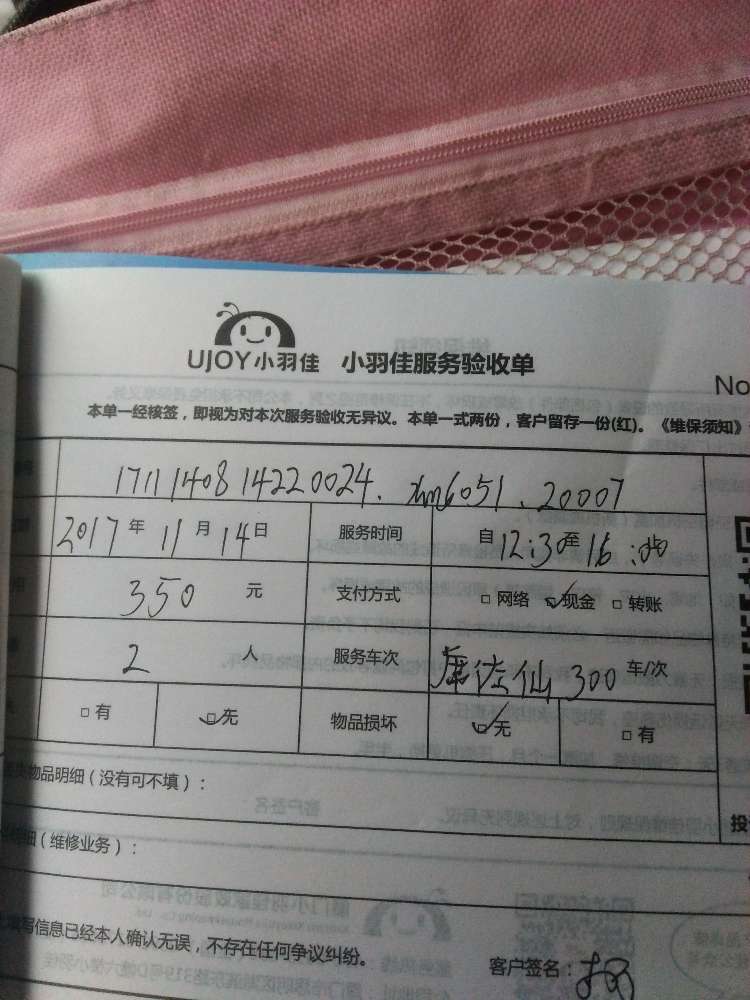 UJOY小羽佳 小羽佳服务验收单
No
本单一经核签，即视为对本次服务验收无异议。本单一式两份，客户留存一份(红)。《维保须知》
1711140814220024. xm6051.20007
2017年11月14日 服务时间 自12:30至16:00
350元 支付方式 □网络 ☑现金 □转账
2人 服务车次 300车/次
□有 ☑无 物品损坏 ☑无 □有
物品明细（没有可不填）：
细（维修业务）：
写信息已经本人确认无误，不存在任何争议纠纷。
客户签名：
投